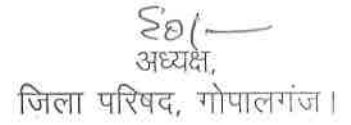 ह०/—
अध्यक्ष,
जिला परिषद, गोपालगंज।